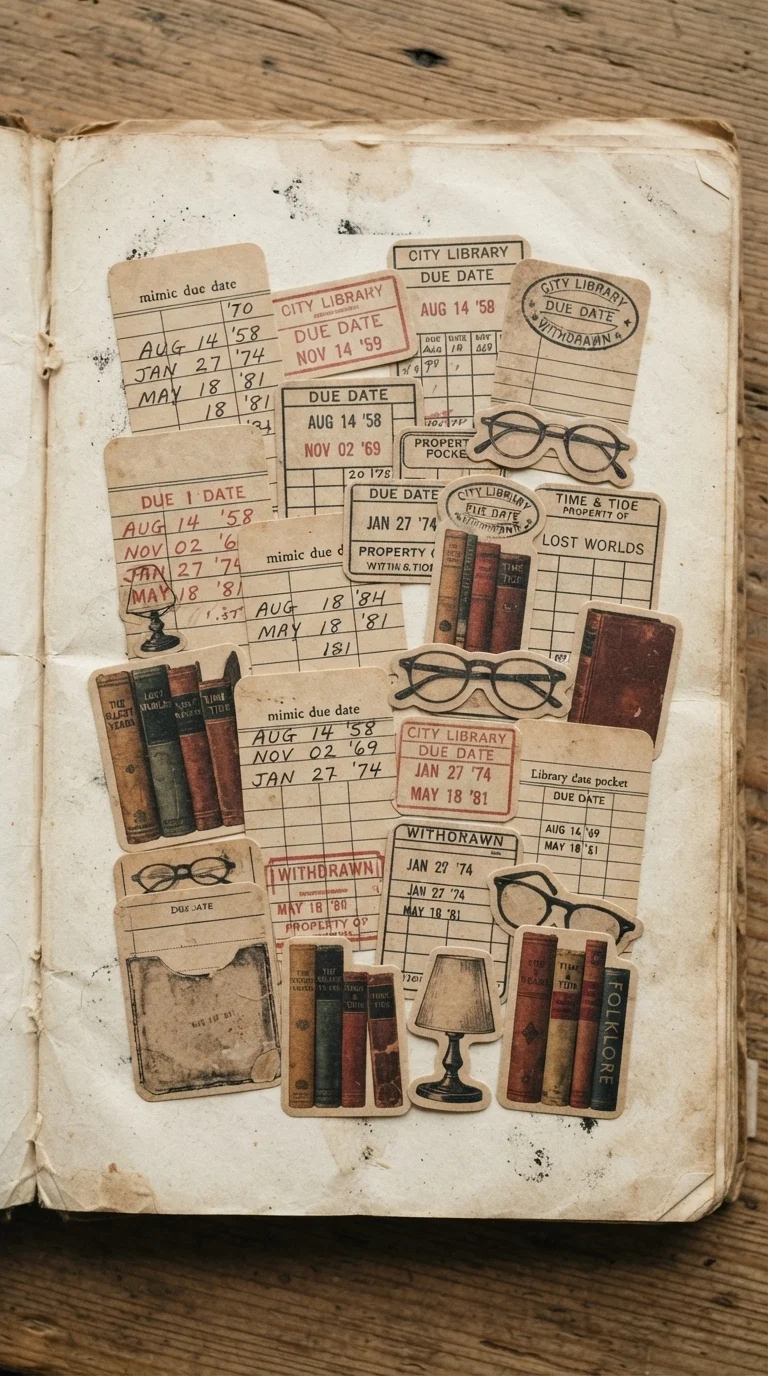 mimic due date
'70
AUG 14 '58
JAN 27 '74
MAY 18 '81
18 '81
CITY LIBRARY
DUE DATE
NOV 14 '59
CITY LIBRARY
DUE DATE
AUG 14 '58
CITY LIBRARY
DUE DATE
DUE DATE
AUG 14 '58
NOV 02 '69
PROPERT
POCKE
DUE DATE
JAN 27 '74
PROPERTY
CITY LIBRARY
DUE DATE
TIME & TIDE
PROPERTY OF
LOST WORLDS
DUE I DATE
AUG 14 '58
NOV 02 '6
JAN 27 '74
MAY 18 '81
mimic due d
AUG 18 '84
MAY 18 '81
181
TIME
TIDE
THE
YEARS
LOST
TIME
TIDE
mimic due date
AUG 14 '58
NOV 02 '69
JAN 27 '74
WITHDRAWN
MAY 18 '80
PROPERTY OF
CITY LIBRARY
DUE DATE
JAN 27 '74
MAY 18 '81
Library date pocket
DUE DATE
AUG 14 '69
MAY 18 '81
WITHDRAWN
JAN 27 '74
JAN 27 '74
MAY 18 '81
DUE DATE
FOLKLORE